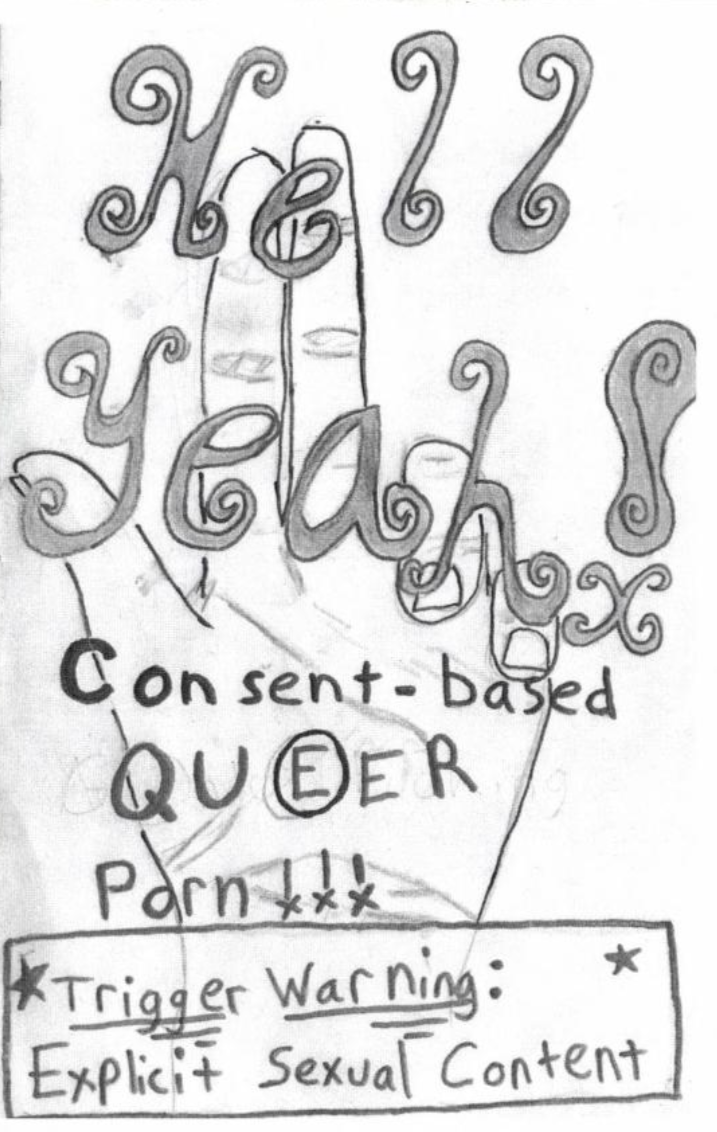 Hell
Yeah!
Consent-based
QUEER
Porn !!!
*Trigger Warning: *
Explicit Sexual Content